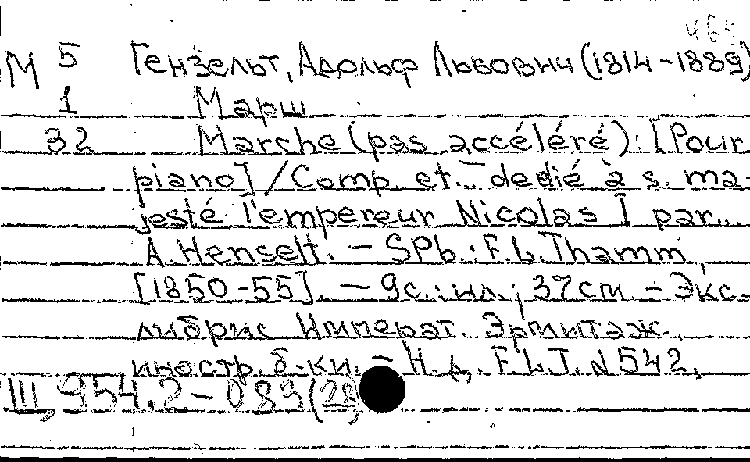 М 5 Гензельт, Адольф Львович (1814-1889)
1 Марш
32 Marche (pas accéléré): [Pour
piano] / Comp. et... dedié à s. ma-
jesté l'empereur Nicolas I par...
A. Henselt. - SPb.: F.L. Thamm,
[1850-55]. - 9с.: ил.; 37cm - Экс-
либрис Императ. Эрмитаж.
иностр. б-ки. - Н.д. F.L.T. N 542.
III, 954.2 - 089 (28,